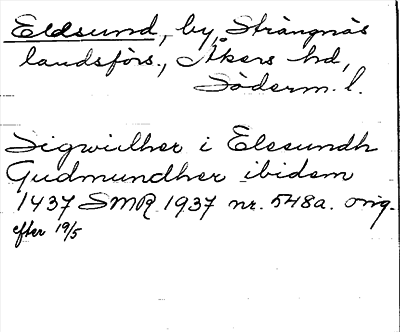 Eldsund, by, Strängnäs
landsförs., Åkers hd,
Söderm. l.
Sigwidher i Elesundh
Gudmundher ibidem
1437 SMR 1937 nr. 548a. orig.
efter 19/5